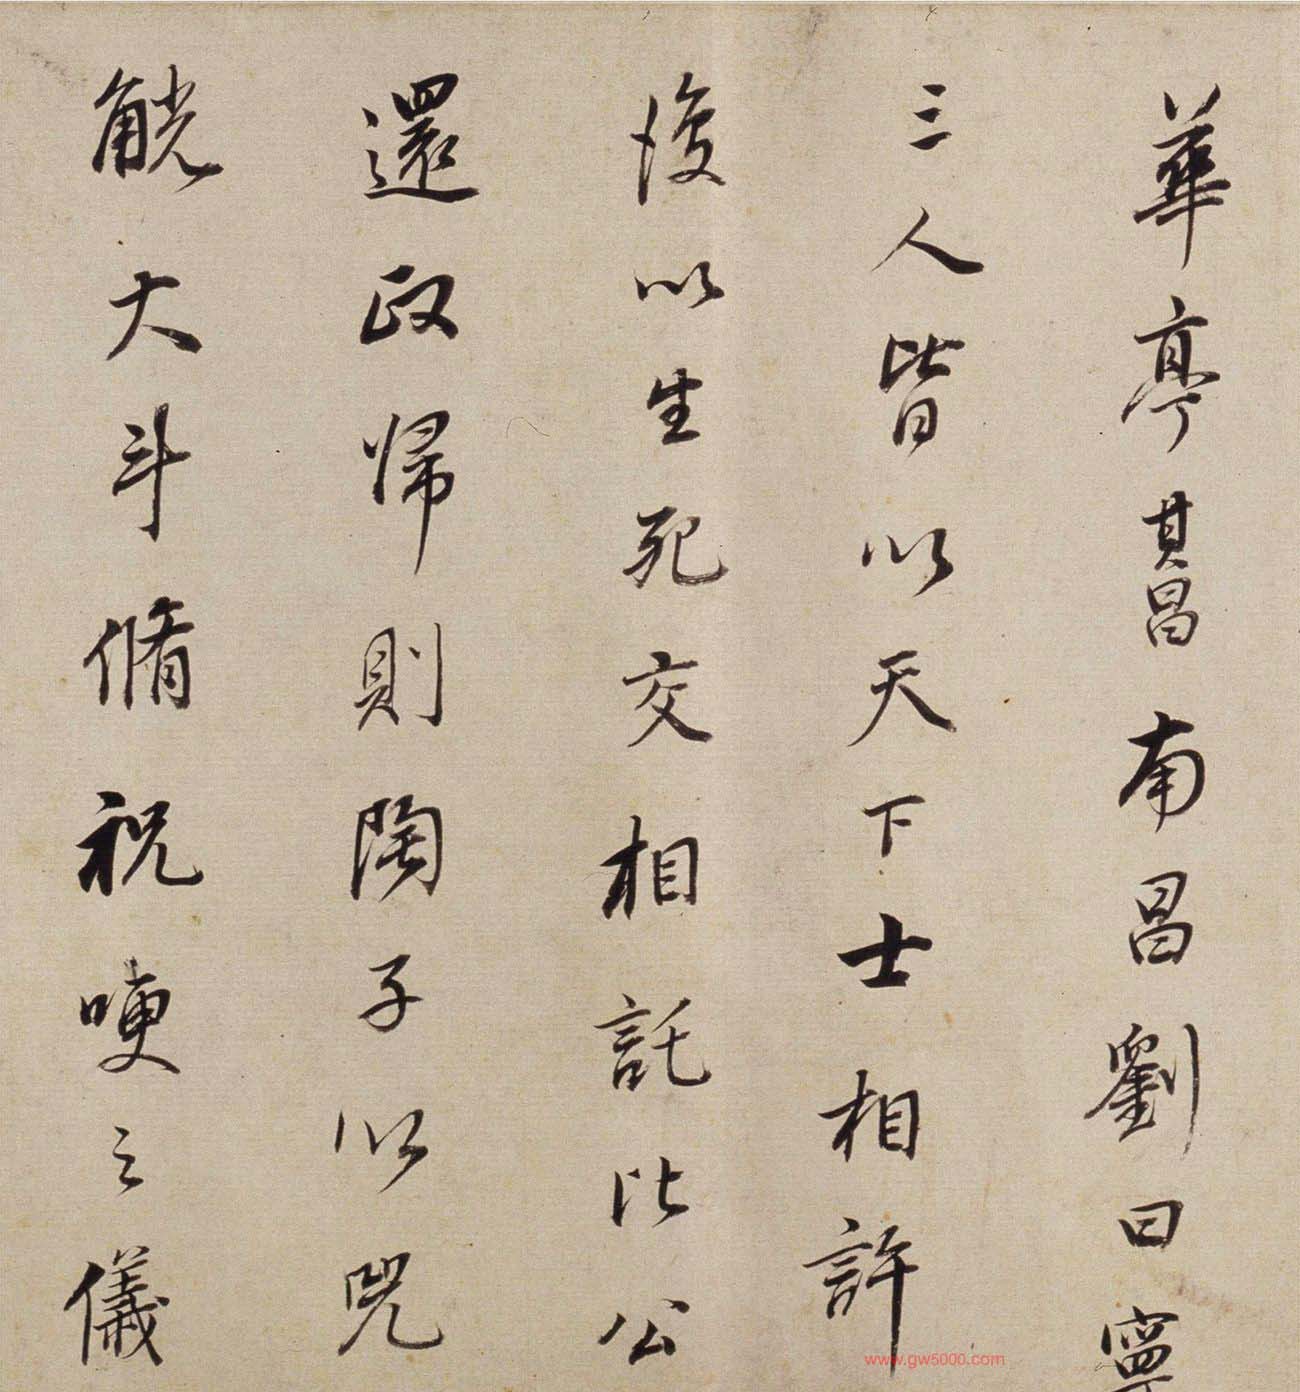 華亭其昌南昌劉曰寧
三人皆以天下士相許
後以生死交相託比公
還政歸則陶子以兕
觥大斗脩祝哽之儀
www.gw5000.com